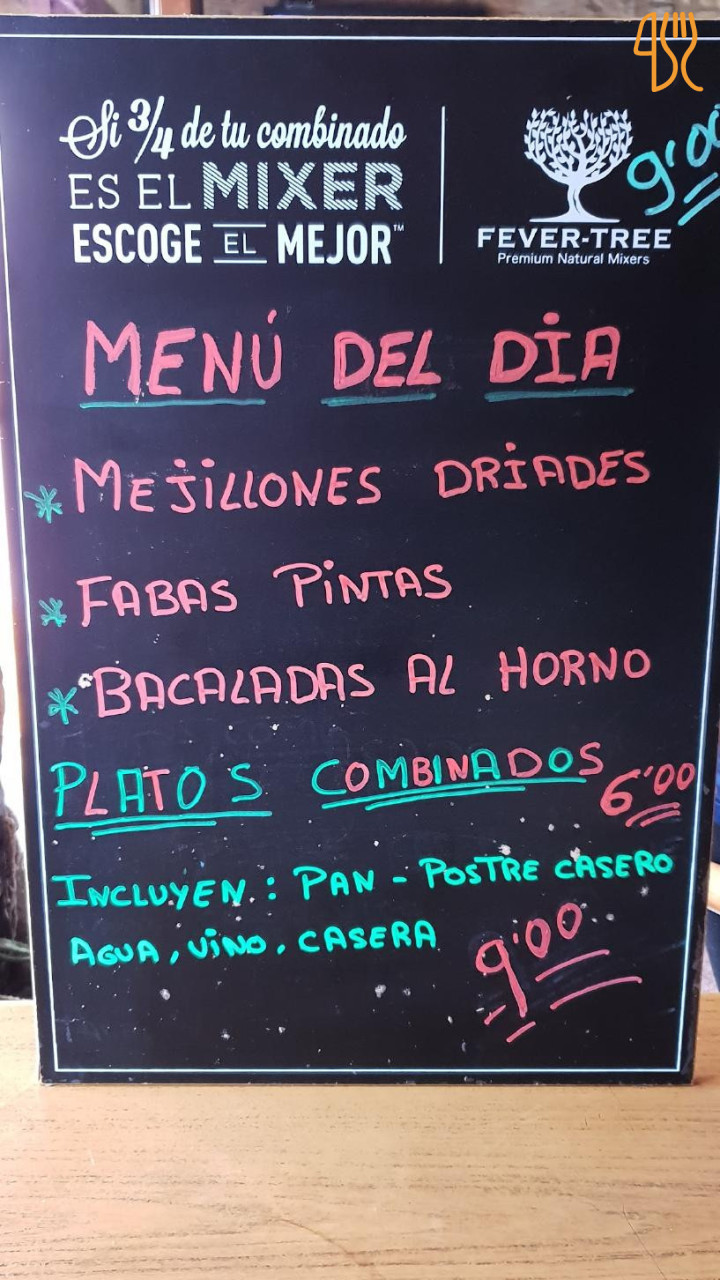 Si 3/4 de tu combinado
ES EL MIXER
ESCOGE EL MEJOR™
FEVER-TREE
Premium Natural Mixers
9'00
MENÚ DEL DIA
* MEJILLONES DRIADES
* FABAS PINTAS
* BACALADAS AL HORNO
PLATOS COMBINADOS 6'00
INCLUYEN: PAN - POSTRE CASERO
AGUA, VINO, CASERA 9'00